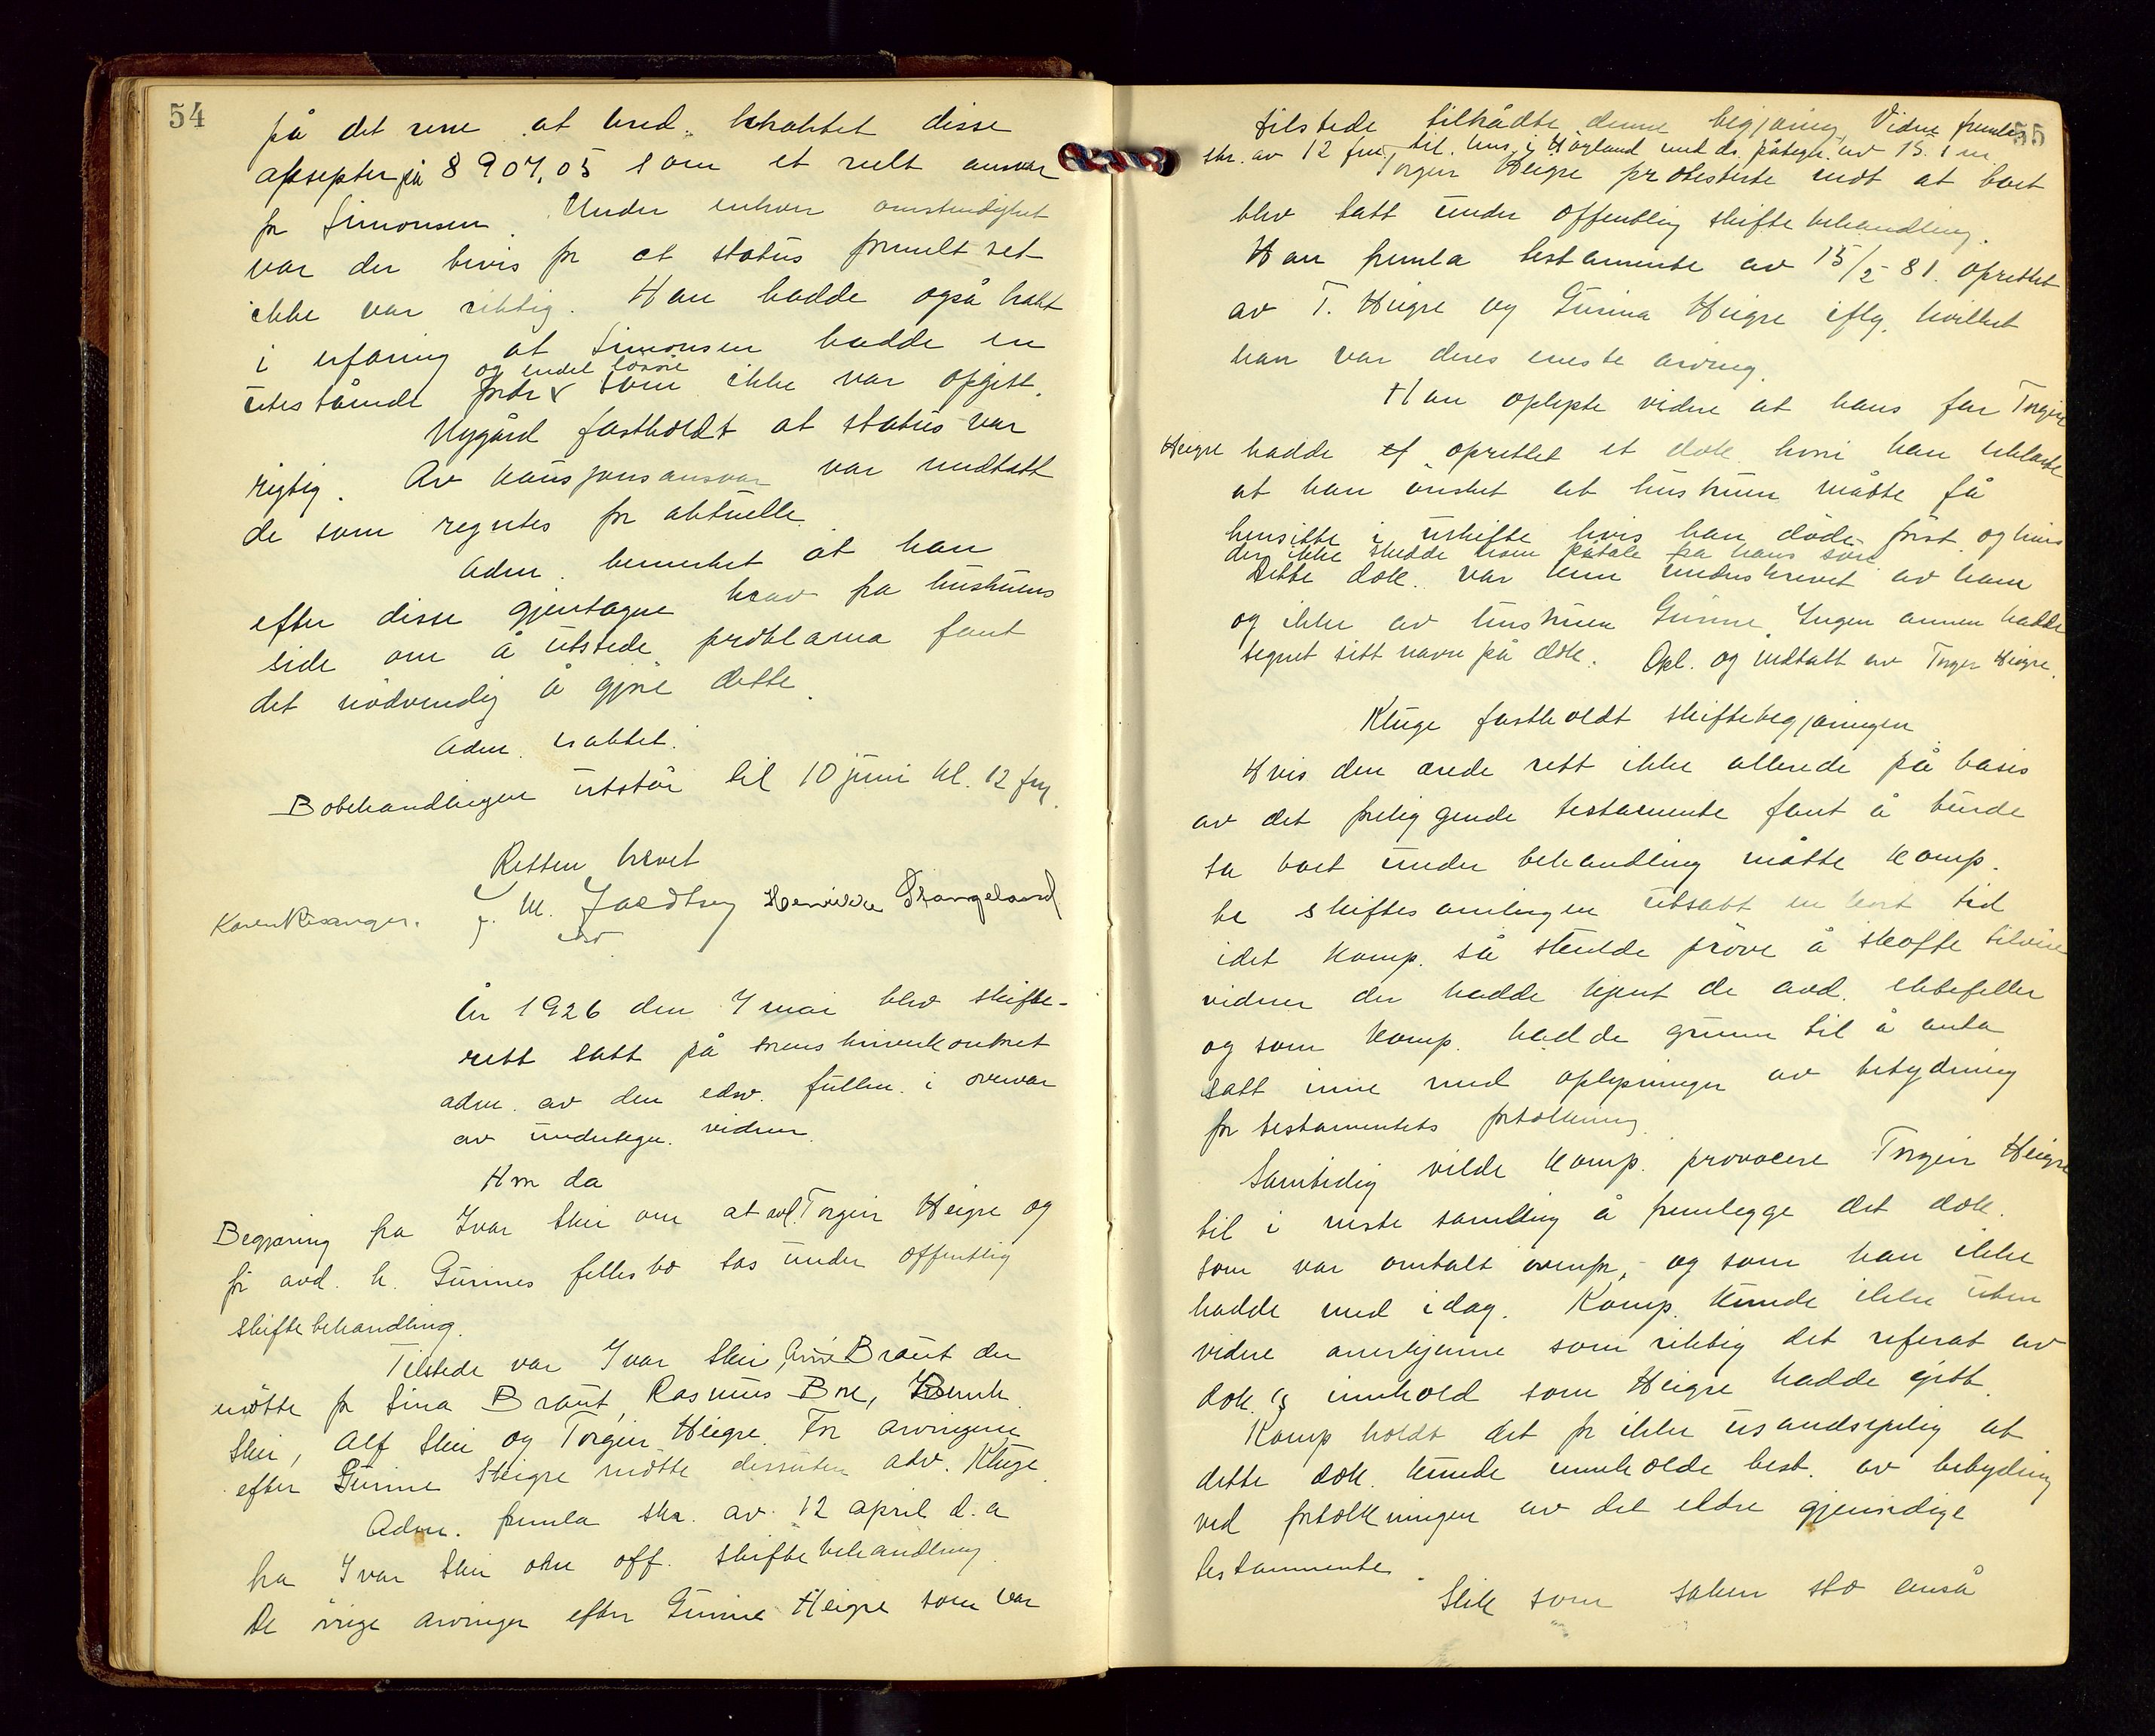 54
på det rene at kred. betraktet disse
aksepter på 8907,05 som et reelt ansvar
for Simonsen. Under enhver omstendighet
var der bevis for at status formelt set
ikke var riktig. Han hadde også bragt
i erfaring at Simonsen hadde en
og endel løsøre
utestående fordr som ikke var opgitt.
Nygård fastholdt at status var
rigtig. Av kausjonsansvar var medtatt
de som regnetes for aktuelle.
Adm. bemerket at han
efter disse gjentagne krav fra hustruens
side om å utstede proklama fant
det nødvendig å gjøre dette.
Adm. vraktet.
Bobehandlingen utstår til 10 juni kl. 12 fm.
Retten hevet
J. M. Henrikke Skangeland
Karen Risanger.
År 1926 den 7 mai blev skifte-
rett satt på sorenskriverkontoret
adm. av den edsv. fullm. i overvær
av undertegn. vidner.
Hvor da
Begjæring fra Ivar Skei om at avd. Torgeir Heigre og
før avd. h. Gurines fellesbo tas under offentlig
skiftebehandling.
Tilstede var Ivar Skei, Arne Braut der
møtte for Sina Braut, Rasmus Bore,
Skei, Alf Skei og Torgeir Heigre. For arvingene
efter Gurine Heigre møtte dessuten adv. Kluge.
Adm. fremla skr. av 12 april d.a
fra Ivar Skei om off. skiftebehandling.
De øvrige arvinger efter Gurine Heigre som var
55
tilstede tilrådte denne begjæring. Videre fremla
skr. av 12 f.m. til hus i Høyland med ds. påtegn. av 15. f.m.
Torgeir Heigre protesterte mot at boet
blev tatt under offentlig skiftebehandling.
Han fremla testamente av 15/2-81. oprettet
av T. Heigre og Gurina Heigre iflg. hvilket
han var deres eneste arving.
Han oplyste videre at hans far Torgeir
Heigre hadde oprettet et dok. hvori han erklærte
at han ønsket at hustruen måtte få
hensitte i uskifte hvis han døde først og hvis
der ikke skedde noen påtale fra hans søn.
Dette dok. var kun underskrevet av ham
og ikke av hustruen Gurine. Ingen annen hadde
tegnet sitt navn på dok. Opl. og vedtatt av Torgeir Heigre.
Kluge fastholdt skiftebegjæringen.
Hvis den ærede rett ikke allerede på basis
av det foreliggende testamente fant å burde
ta boet under behandling måtte komp.
be skiftesamlingen utsatt en kort tid
idet komp. så skulde prøve å skaffe tilveie
vidner der hadde kjent de avd. ektefeller
og som komp. hadde grunn til å anta
satt inne med oplysninger av betydning
for testamentets fortolkning.
Samtidig vilde komp. provocere Torgeir Heigre
til i neste samling å fremlegge det dok.
som var omtalt ovenfor, og som han ikke
hadde med idag. Komp. kunde ikke uten
videre anerkjenne som riktig det referat av
dok.s innhold som Heigre hadde gitt.
Komp holdt det for ikke usandsynlig at
dette dok. kunde inneholde best. av betydning
ved fortolkningen av det eldre gjensidige
testamente.
Slik som saken sto enså